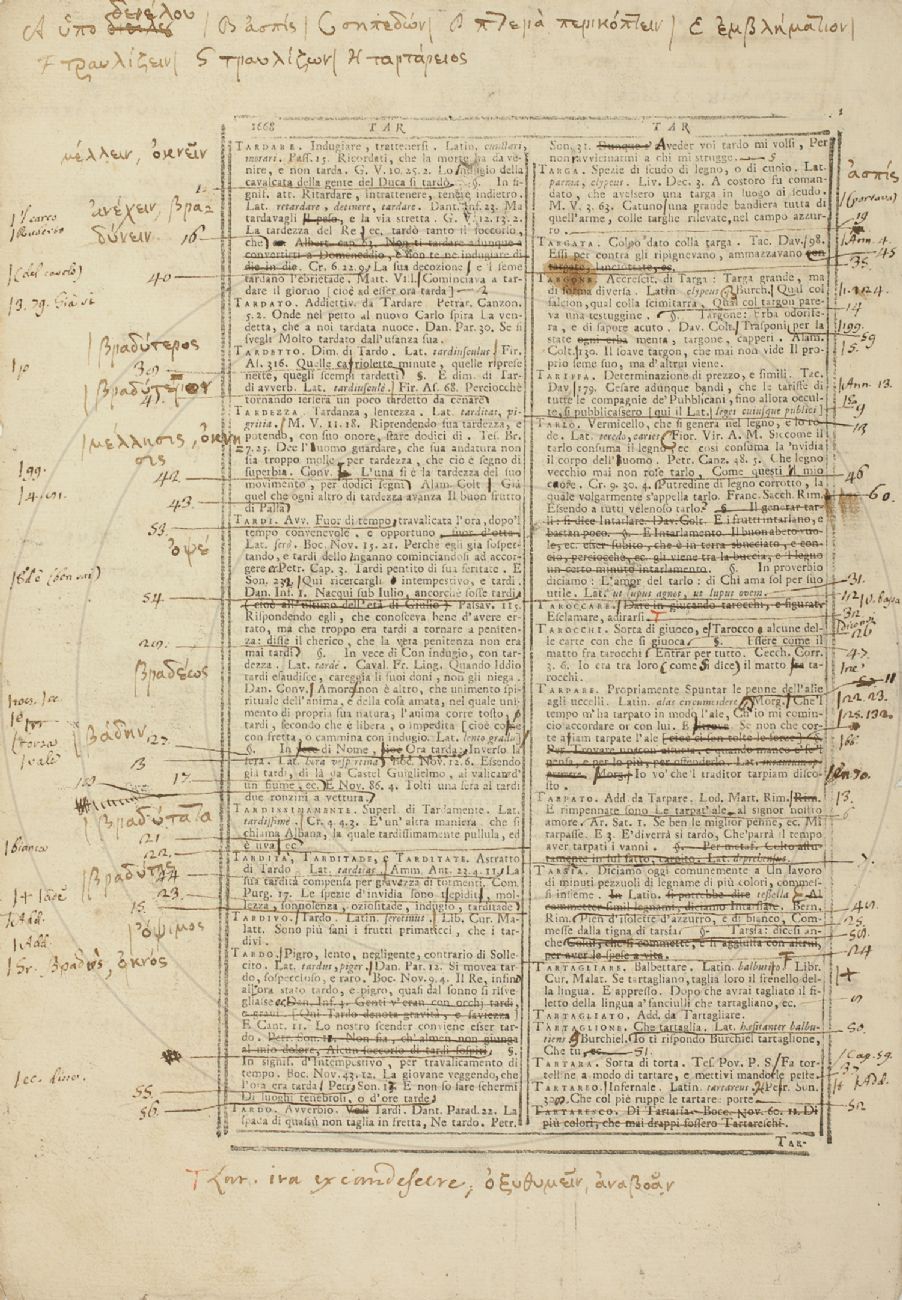 A ὑπὸ δενελου / B ἀσπίς / C σηπεδών / D πτερὰ περικόπτειν / E ἐμβλημάτιον /
F τραυλίζειν / G τραυλίζων / H ταρτάρειος
1668 TAR TAR
μέλλειν, ὀκνεῖν
ἀνέχειν, βρα
δύνειν
16
40
βραδύτερος
39
βραδύτερον
41
μέλλησις, ὀκνη
σις
42
43
53
ὀψέ
54
βραδέως
βάδην
127
13
17
βραδύτατα
21
22
βραδύτης
44
23
15
ὄψιμος
βραδὺς, ὀκνός
55
56
TARDARE. Indugiare, trattenersi. Latin. cunctari,
morari. Pass. 15. Ricordati, che la morte ha da ve-
nire, e non tarda. G. V. 10. 25. 2. Lo indugio della
cavalcata della gente del Duca si tardò. §. In si-
gnif. att. Ritardare, intrattenere, tenere indietro.
Lat. retardare, detinere, tardare. Dant. Inf. 23. Ma
tardavagli il peso, e la via stretta. G. V. 12. 13. 2.
La tardezza del Re, ec. tardò tanto il soccorso,
che, ec. Albert. cap. 63. Non ti tardare adunque a
convertirti a Domeneddio, e non te ne indugiare di
die in die. Cr. 6. 22. 9. La sua decozione, e 'l seme
tardano l'ebrietade. Matt. Vill. Cominciava a tar-
dare il giorno [cioè ad esser ora tarda]
TARDATO. Addiettiv. da Tardare Petrar. Canzon.
5. 2. Onde nel petto al nuovo Carlo spira La ven-
detta, che a noi tardata nuoce. Dan. Par. 30. Se si
svegli Molto tardato dall'usanza sua.
TARDETTO. Dim. di Tardo. Lat. tardiusculus. Fir.
As. 316. Quelle capriolette minute, quelle riprese
nette, quegli scempi tardetti §. E dim. di Tar-
di avverb. Lat. tardiusculè. Fir. As. 68. Perciocchè
tornando iersera un poco tardetto da cenare
TARDEZZA. Tardanza, lentezza. Lat. tarditas, pi-
gritia. M. V. 11. 18. Riprendendo sua tardezza, e
potendo, con suo onore, stare dodici dì. Tes. Br.
7. 25. Dee l'uomo guardare, che sua andatura non
sia troppo molle per tardezza, che ciò è segno di
superbia. Conv. L'una si è la tardezza del suo
movimento, per dodici segni. Alam. Colt. Già
quel che ogni altro di tardezza avanza Il buon frutto
di Palla
TARDI. Avv. Fuor di tempo, travalicata l'ora, dopo'l
tempo convenevole, e opportuno, fuor d'otta.
Lat. serò. Boc. Nov. 15. 21. Perchè egli già sospet-
tando, e tardi dello inganno cominciandosi ad accor-
gere. Petr. Cap. 3. Tardi pentito di sua feritate. E
Son. 232. Qui ricercargli intempestivo, e tardi.
Dan. Inf. 1. Nacqui sub Iulio, ancorchè fosse tardi,
(cioè all'ultimo dell'età di Giulio) Passav. 115.
Rispondendo egli, che conosceva bene d'avere er-
rato, ma che troppo era tardi a tornare a peniten-
za: disse il cherico, che la vera penitenza non era
mai tardi. §. In vece di Con indugio, con tar-
dezza. Lat. tardè. Caval. Fr. Ling. Quando Iddio
tardi esaudisce, careggia li suoi doni, non gli niega.
Dan. Conv. Amore non è altro, che unimento spi-
rituale dell'anima, e della cosa amata, nel quale uni-
mento di propria sua natura, l'anima corre tosto, e
tardi, secondo che è libera, o impedita [cioè corre
con fretta, o cammina con indugio. Lat. lento gradu]
§. In forza di Nome, dice Ora tarda, Inverso la
sera. Lat. hora vespertina. Boc. Nov. 12. 6. Essendo
già tardi, di là da Castel Guglielmo, al valicar d'
un fiume, ec. E Nov. 86. 4. Tolti una sera al tardi
due ronzini a vettura.
TARDISSIMAMENTE. Superl. di Tardamente. Lat.
tardissimè. Cr. 4. 4. 3. E' un'altra maniera che si
chiama Albana, la quale tardissimamente pullula, ed
è uva, ec.
TARDITÀ, TARDITADE, e TARDITATE. Astratto
di Tardo. Lat. tarditas. Amm. Ant. 23. 4. 11. La
sua tardità compensa per gravezza di tormenti. Com.
Purg. 17. Le spezie d'invidia sono tiepidità, mol-
lezza, sonnolenza, oziositade, indugio, tarditade
TARDIVO. Tardo. Latin. serotinus. Lib. Cur. Ma-
latt. Sono più sani i frutti primaticci, che i tar-
divi.
TARDO. Pigro, lento, negligente, contrario di Solle-
cito. Lat. tardus, piger. Dan. Par. 12. Si movea tar-
do, sospeccioso, e raro. Boc. Nov. 9. 4. Il Re, infino
all'ora stato tardo, e pigro, quasi dal sonno si risve-
gliasse ec. Dan. Inf. 3. Genti v'eran con occhi tardi,
e gravi. [Qui Tardo denota gravità, e saviezza]
E Cant. 11. Lo nostro scender conviene esser tar-
do. Petr. Son. 11. Non fia, ch'almen non giunga
al mio dolore, Alcun soccorso di tardi sospiri. §.
In signif. d'Intempestivo, per travalicamento di
tempo. Boc. Nov. 43. 12. La giovane veggendo, che
l'ora era tarda. Petr. Son. 17. E non fo fare schermi
Di luoghi tenebrosi, o d'ore tarde.
TARDO. Avverbio. Vedi Tardi. Dant. Parad. 22. La
spada di quassù non taglia in fretta, Ne tardo. Petr.
Son. 31. Dunque s'Aveder voi tardo mi volsi, Per
non ravvicinarmi a chi mi strugge.
TARGA. Spezie di scudo di legno, o di cuoio. Lat.
parma, clypeus. Liv. Dec. 3. A costoro fu coman-
dato, che avessero una targa in luogo di scudo.
M. V. 2. 63. Catuno una grande bandiera tutta di
quell'arme, colle targhe rilevate, nel campo azzur-
ro.
TARGATA. Colpo dato colla targa. Tac. Dav. 98.
Essi per contra gli ripignevano, ammazzavano con
targate, lanciottate, ec.
TARGONE. Accresc. di Targa: Targa grande, ma
di forma diversa. Latin. clypeus. Burch. Qual col
falcion, qual colla scimitarra, Qual col targon pare-
va una testuggine. §. Targone: Erba odorife-
ra, e di sapore acuto. Dav. Colt. Trasponi per la
state ogni erba menta, targone, capperi. Alam.
Colt. 130. Il soave targon, che mai non vide Il pro-
prio seme suo, ma d'altrui viene.
TARIFFA. Determinazione di prezzo, e simili. Tac.
Dav. 179. Cesare adunque bandì, che le tariffe di
tutte le compagnie de' Pubblicani, fino allora occul-
te, si pubblicassero [qui il Lat. leges cuiusque publici]
TARLO. Vermicello, che si genera nel legno, e lo ro-
de. Lat. teredo, caries. Fior. Vir. A. M. Siccome il
tarlo consuma il legno, ec. così consuma la 'nvidia
il corpo dell'uomo. Petr. Canz. 48. 5. Che legno
vecchio mai non rose tarlo, Come questi il mio
cuore. Cr. 9. 30. 4. Putredine di legno corrotto, la
quale volgarmente s'appella tarlo. Franc. Sacch. Rim.
Essendo a tutti velenoso tarlo. §. Il generar tar-
li: si dice Intarlare. Dav. Colt. E i frutti intarlano, e
bastan poco. §. E Intarlamento. Il buon abeto vuo-
le, ec. esser subito, che è in terra sbucciato, e con-
cio, perciocchè, ec. gli viene tra la buccia, e 'l legno
un certo minuto intarlamento. §. In proverbio
diciamo: L'amor del tarlo: di Chi ama sol per suo
utile. Lat. ut lupus agnos, ut lupus ovem.
TAROCCARE. Dare in giucando tarocchi, e figurat.
Esclamare, adirarsi.
TAROCCHI. Sorta di giuoco, e Tarocco, alcune del-
le carte con che si giuoca. §. Essere come il
matto fra tarocchi. Entrar per tutto. Cecch. Corr.
3. 6. Io era tra loro (come si dice) il matto fra ta-
rocchi.
TARPARE. Propriamente Spuntar le penne dell'alie
agli uccelli. Latin. alas circumcidere. Morg. Che'l
tempo m'ha tarpato in modo l'ale, Ch'io mi comin-
cio accordare on con lui. E altrove. Se non che cor-
te a siam tarpate l'ale [cioè ci son tolte le forze]. §.
Per Trovare uno con astuzia, e quando manco e' se'l
pensa, e per lo più, per offenderlo. Lat. incautum op-
primere. Morg. Io vo' che'l traditor tarpiam disco-
sto.
TARPATO. Add. da Tarpare. Lod. Matt. Rim. Rim.
E rimpennate sono Le tarpat'ale al signor nostro
amore. Ar. Sat. 1. Se ben le miglior penne, ec. Mi
tarpasse. E 3. E' diverrà sì tardo, Che'parrà il tempo
aver tarpati i vanni. §. Per metaf. Colto astu-
tamente in sul fatto, carpito. Lat. deprehensus.
TARSIA. Diciamo oggi comunemente a Un lavoro
di minuti pezzuoli di legname di più colori, commes-
si insieme. In Latin. si potrebbe dire tessella. Al
commetter simil legnami, diciamo Intarsiare. Bern.
Rim. Pien d'isolette d'azzurro, e di bianco, Com-
messe dalla tigna di tarsia. §. Tarsia: dicesi an-
che Colui, che si commette, e si aggiusta con altrui,
per aver lo spese a vita.
TARTAGLIARE. Balbettare. Latin. balbutire. Libr.
Cur. Malat. Se tartagliano, taglia loro il frenello del-
la lingua. E appresso. Dopo che avrai tagliato il fi-
letto della lingua a' fanciulli che tartagliano, ec.
TARTAGLIATO. Add. da Tartagliare.
TARTAGLIONE. Che tartaglia. Lat. hæsitanter balbu-
tiens. Burchiel. Io ti rispondo Burchiel tartaglione,
Che tu, ec.
TARTARA. Sorta di torta. Tes. Pov. P. S. Fa tor-
telline a modo di tartare, e mettivi mandorle peste.
TARTAREO. Infernale. Latin. tartareus. Petr. Son.
32. Che col piè ruppe le tartaree porte
TARTARESCO. Di Tartaria. Bocc. Nov. 60. 11. Di
più colori, che mai drappi fossero Tartareschi.
TAR-
ἀσπίς
19
45
35
14
59
15
13
46
60
31
32
26
47
11
13
25
24
50
51
37
52
T Lar. ira excandescere, ὀξυθυμεῖν, ἀναβοᾶν